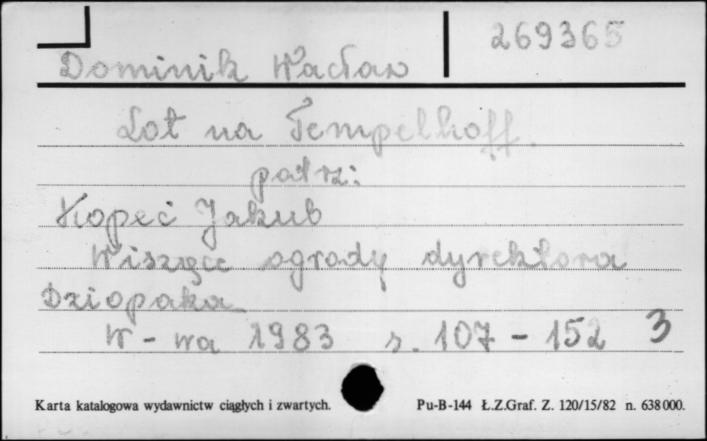 269365
Dominik Wacław
Lot na Tempelhoff.
patrz:
Kopeć Jakub
Wiszące ogrody dyrektora
Dziopaka
W-wa 1983 s. 107-152 3
Karta katalogowa wydawnictw ciągłych i zwartych. Pu-B-144 Ł.Z.Graf. Z. 120/15/82 n. 638000.